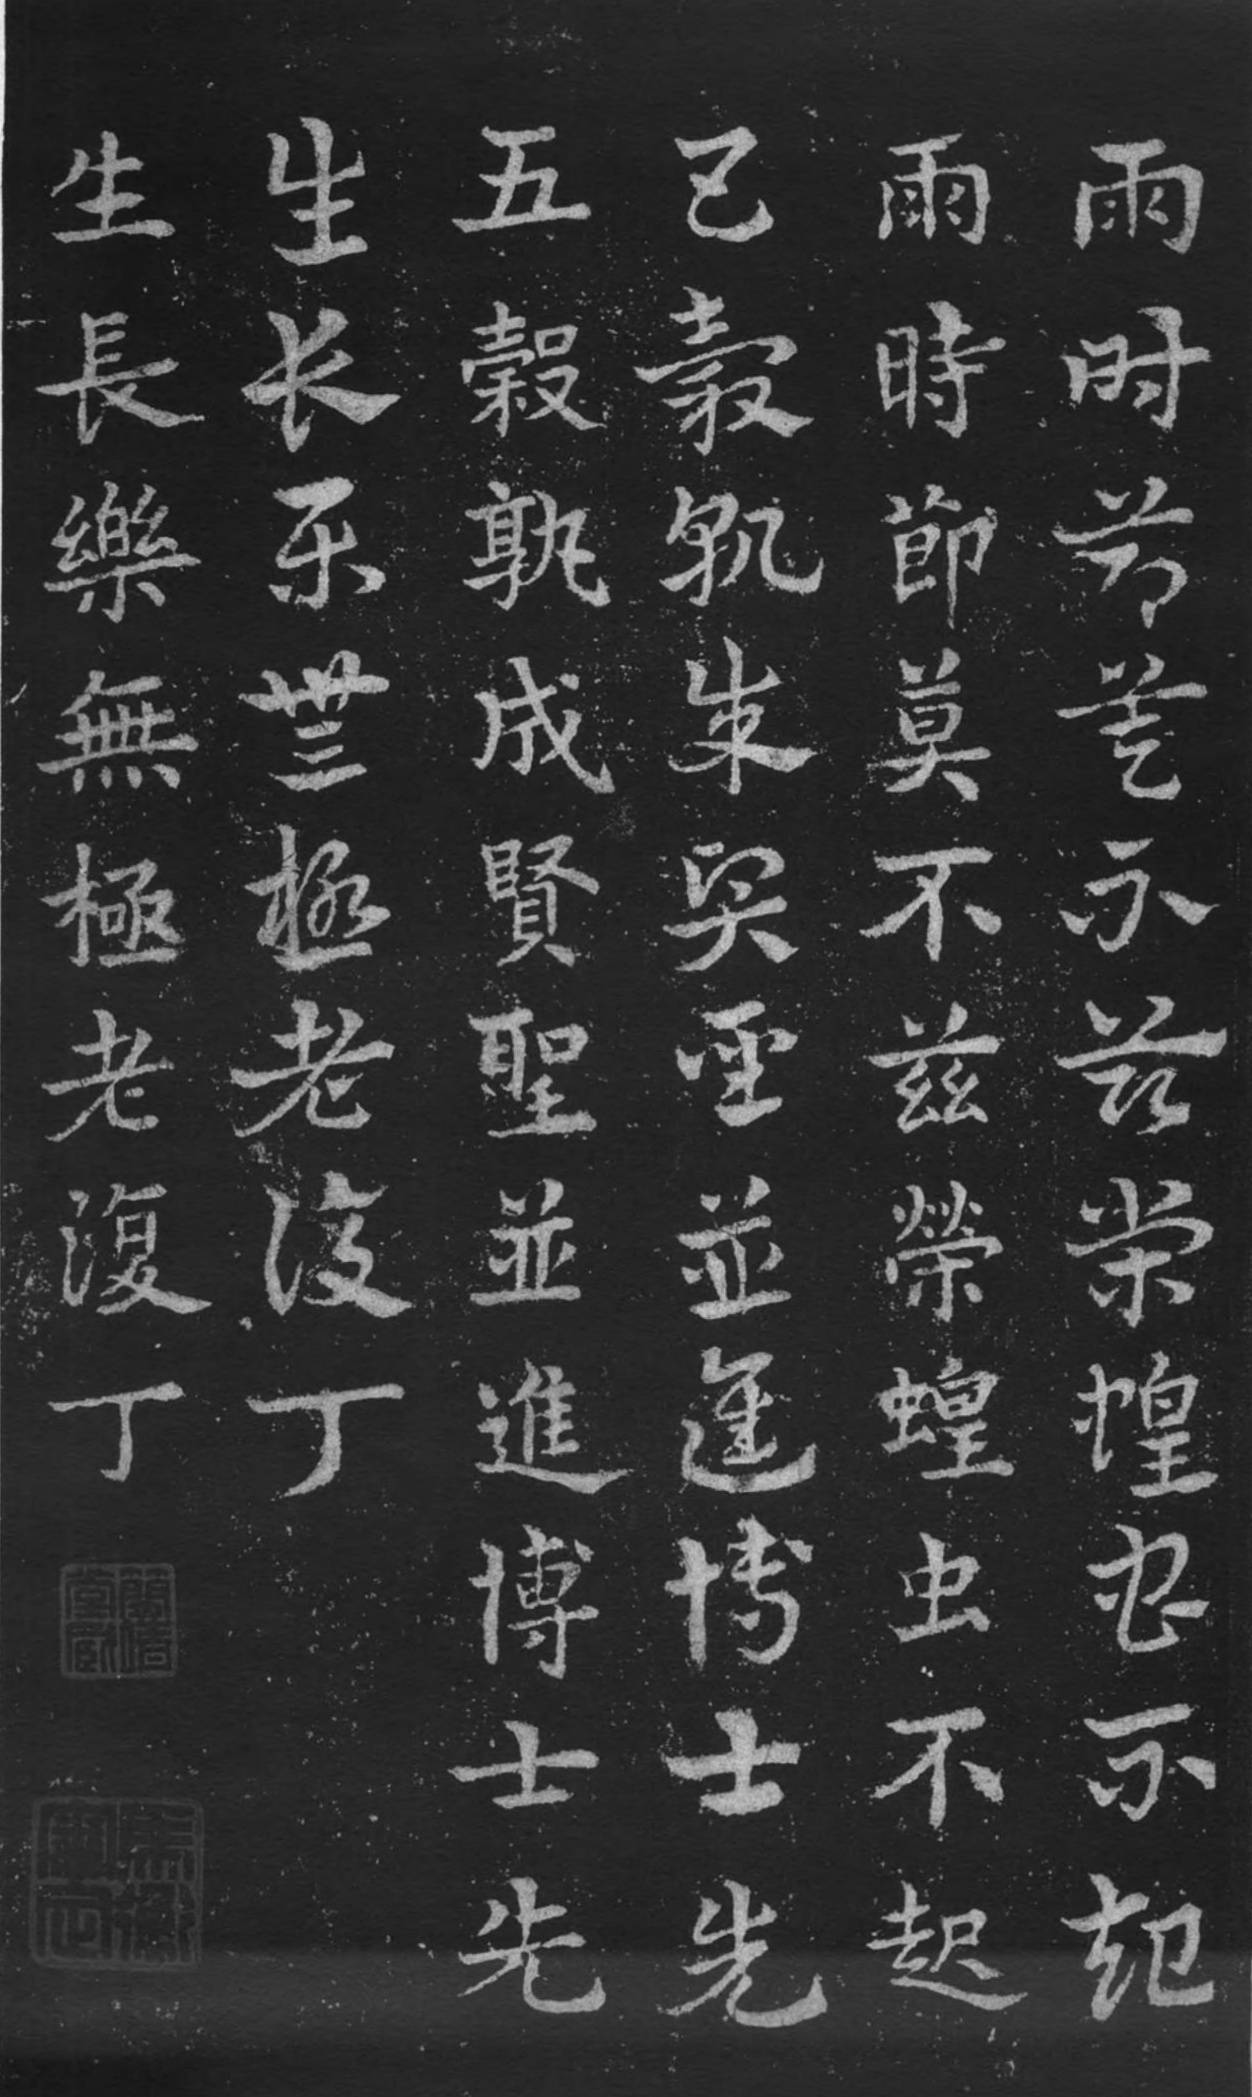 雨時節莫不茲榮蝗虫不起
雨時節莫不茲榮蝗虫不起
五穀孰成賢聖並進博士先
五穀孰成賢聖並進博士先
生長樂無極老復丁
生長樂無極老復丁